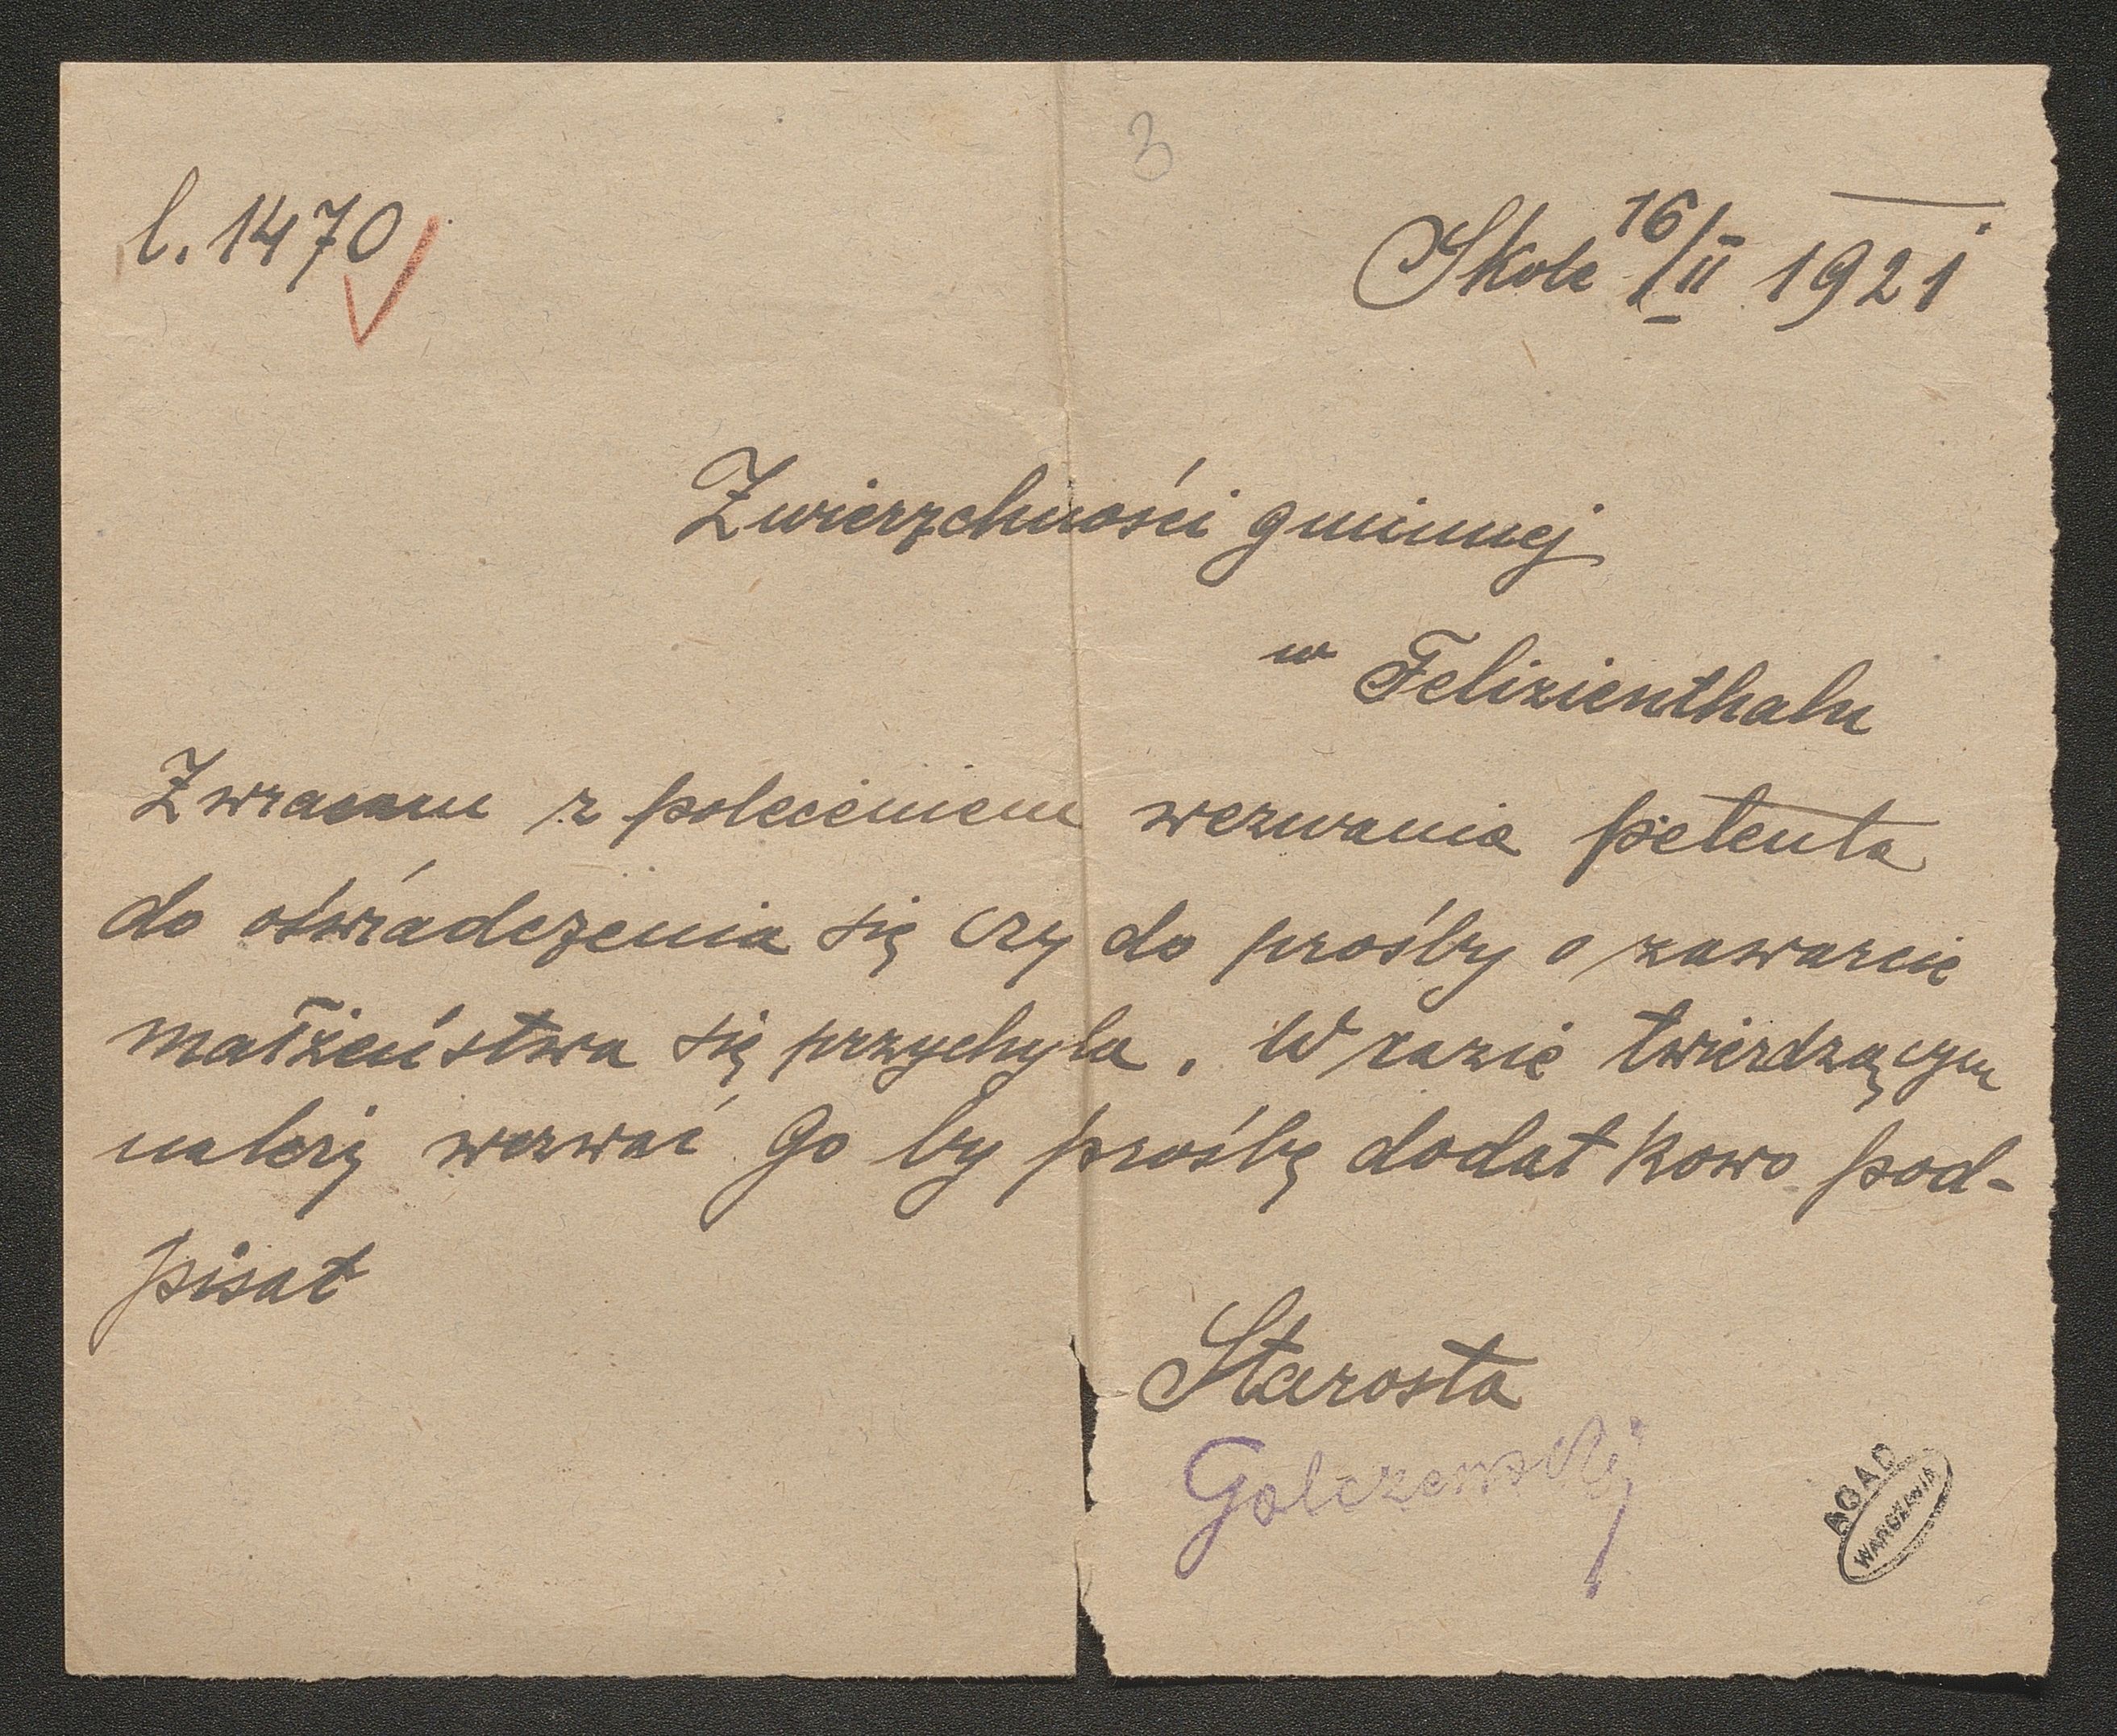 3
l. 1470
Skole 16/II 1921
Zwierzchności gminnej
w Felizienthalu
Zwracam z poleceniem wezwania petenta
do oświadczenia się czy do prośby o zawarcie
małżeństwa się przychyla. W razie twierdzącym
należy wezwać Go by prośbę dodatkowo pod-
pisał
Starosta
Golczewski
AGAD
WARSZAWA